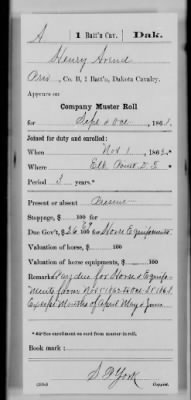 A | 1 Batt'n Cav. | Dak.
Henry Arend
Priv., Co. B, 1 Batt'n, Dakota Cavalry.
Appears on
Company Muster Roll
for Sept & Oct, 186
Joined for duty and enrolled:
When Nov 1, 186
Where Elk Point D.T.
Period 3 years.*
Present or absent Present
Stoppage, $ 100 for
Due Gov't, $ 100 for Horse Equipments
Valuation of horse, $ 100
Valuation of horse equipments, $ 100
Remarks: Pay due for Horse & Equip-
ments from Nov 1
Except Months of April May & June
*See enrollment on card from muster-in roll.
Book mark:
S P York
Copyist.